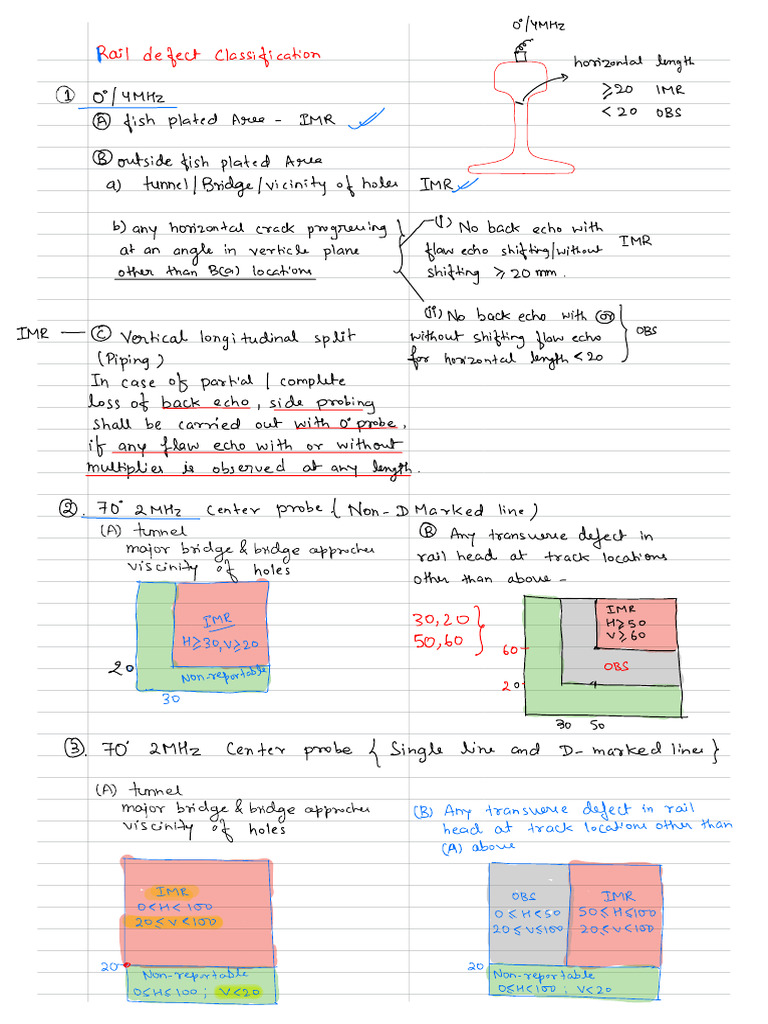 0°/4MHz
Rail defect classification
horizontal length
≥20 IMR
<20 OBS
① 0°/4MHz
Ⓐ fish plated Area - IMR
Ⓑ outside fish plated Area
a) tunnel/Bridge/vicinity of holes IMR
b) any horizontal crack progressing
at an angle in verticle plane
other than B(a) locations
(i) No back echo with
flaw echo shifting/without
shifting ≥ 20 mm.
IMR
(ii) No back echo with or
without shifting flaw echo
for horizontal length <20
OBS
IMR — Ⓒ Vertical longitudinal split
(Piping)
In case of partial / complete
loss of back echo, side probing
shall be carried out with 0° probe,
if any flaw echo with or without
multiplies is observed at any length.
②. 70° 2MHz center probe { Non-D Marked line)
(A) tunnel
major bridge & bridge approches
viscinity of holes
IMR
H≥30, V≥20
Non-reportable
20
30
Ⓑ Any transverse defect in
rail head at track locations
other than above -
30, 20
50, 60
IMR
H≥50
V≥60
60
OBS
20
30 50
③. 70° 2MHz Center probe { Single line and D-marked lines}
(A) tunnel
major bridge & bridge approches
viscinity of holes
IMR
0<H<100
20≤V<100
20
Non-reportable
0≤H≤100 ; V<20
(B) Any transverse defect in rail
head at track locations other than
(A) above
OBS
0≤H<50
20≤V≤100
IMR
50≤H≤100
20≤V<100
20
Non-reportable
0≤H≤100 ; V<20